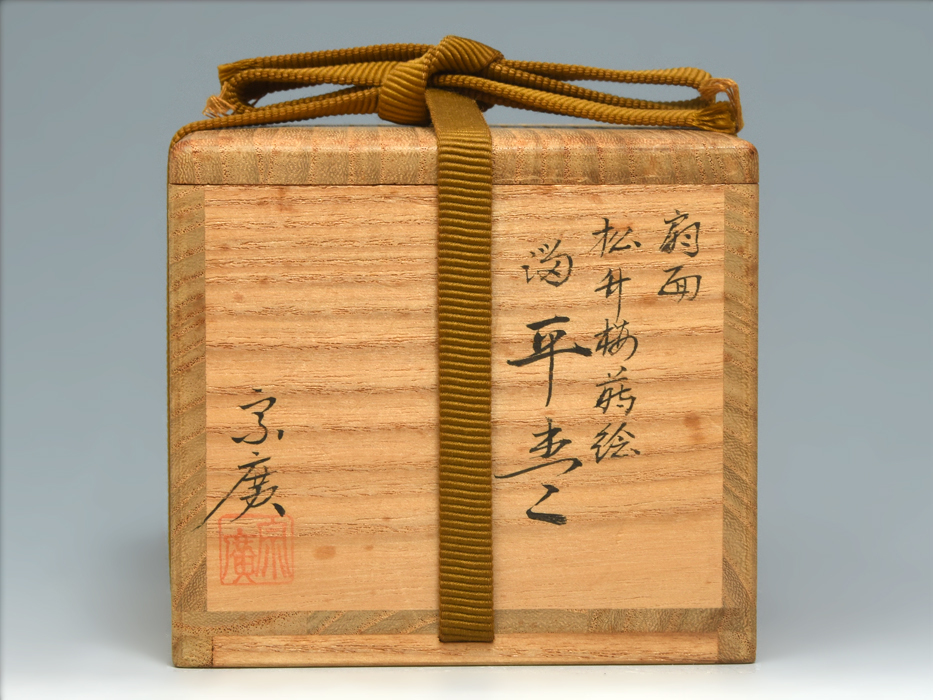 扇面
松竹梅蒔絵
溜 平棗
宗廣
宗廣